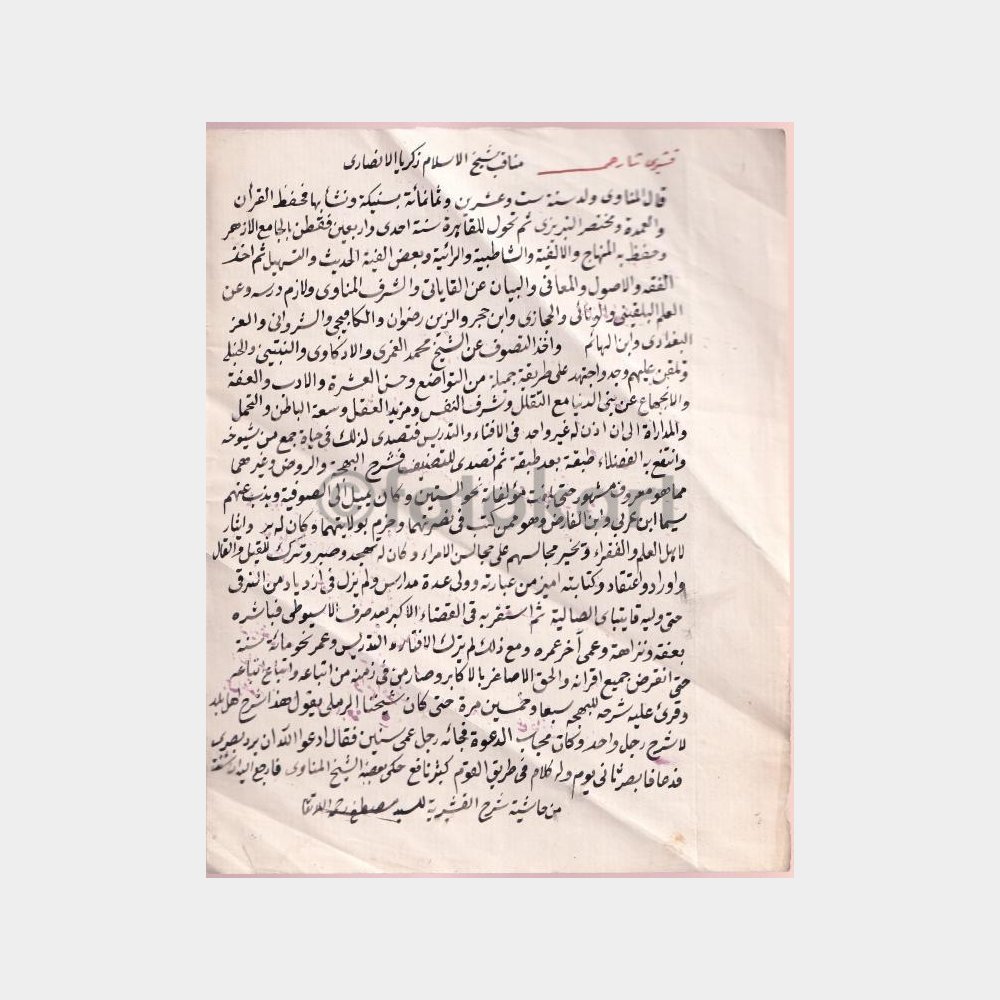 قشيرى شارحى مناقب شيخ الاسلام زكريا الانصارى
قال المناوى ولد سنة ست وعشرين وثمانمائة بسنيكة ونشأ بها فحفظ القرأن
والعمدة ومختصر التبريزى ثم تحول للقاهرة سنة احدى واربعين فقطن بالجامع الازهر
وحفظ به المنهاج والالفية والشاطبية والرائية وبعض الفية الحديث والتسهيل ثم اخذ
الفقه والاصول والمعانى والبيان عن القاياتى والشرف المناوى ولازم درسه وعن
العلم البلقينى والونائى والحجازى وابن حجر والزين رضوان والكافيجى والشروانى والعز
البغدادى وابن الهائم واخذ التصوف عن الشيخ محمد الغمرى والادكاوى والنبتيتى والحنبلى
وتلقن عليهم وجد واجتهد على طريقة جميلة من التواضع وحسن العشرة والادب والعفة
والانجماع عن بنى الدنيا مع التقلل وشرف النفس ومزيد العقل وسعة الباطن والتحمل
والمداراة الى ان اذن له غير واحد فى الافتاء والتدريس فتصدى لذلك فى حياة جمع من شيوخه
وانتفع به الفضلاء طبقة بعد طبقة ثم تصدى للتصنيف فشرح البهجة والروض وغيرهما
مما هو معروف مشهور حتى بلغت مؤلفاته نحو الستين وكان يميل الى الصوفية ويذب عنهم
سيما ابن عربى وابن الفارض وهو ممن كتب فى نصرتهما وجزم بولايتهما وكان له بر وايثار
لاهل العلم والفقراء وتخير مجالسهم على مجالس الامراء وكان له تهجد وصبر وترك للقيل والقال
واوراد واعتقاد وكتابته اميز من عبارته وولى عدة مدارس ولم يزل فى ازدياد من الترقى
حتى وليه قايتباى الصالحية ثم استقر به فى القضاء الاكبر بعد صرف الاسيوطى فباشره
بعفة ونزاهة وعمى آخر عمره ومع ذلك لم يترك الافتاء والتدريس وعمر نحو مائة سنة
حتى انقرض جميع اقرانه والحق الاصاغر بالاكابر وصار من فى زمنه من اتباعه واتباع اتباعه
وقرئ عليه شرحه للبهجة سبعا وخمسين مرة حتى كان شيخنا الرملى يقول هذا شرح اهل بلد
لا شرح رجل واحد وكان مجاب الدعوة فجائه رجل عمى سنين فقال ادعو الله ان يرد بصرى
فدعا فابصر ثانى يوم وله كلام فى طريق القوم كثير نافع حكى بعضه الشيخ المناوى فارجع اليه ان شئت
من حاشية شرح القشيرية للسيد مصطفى
©fotokart